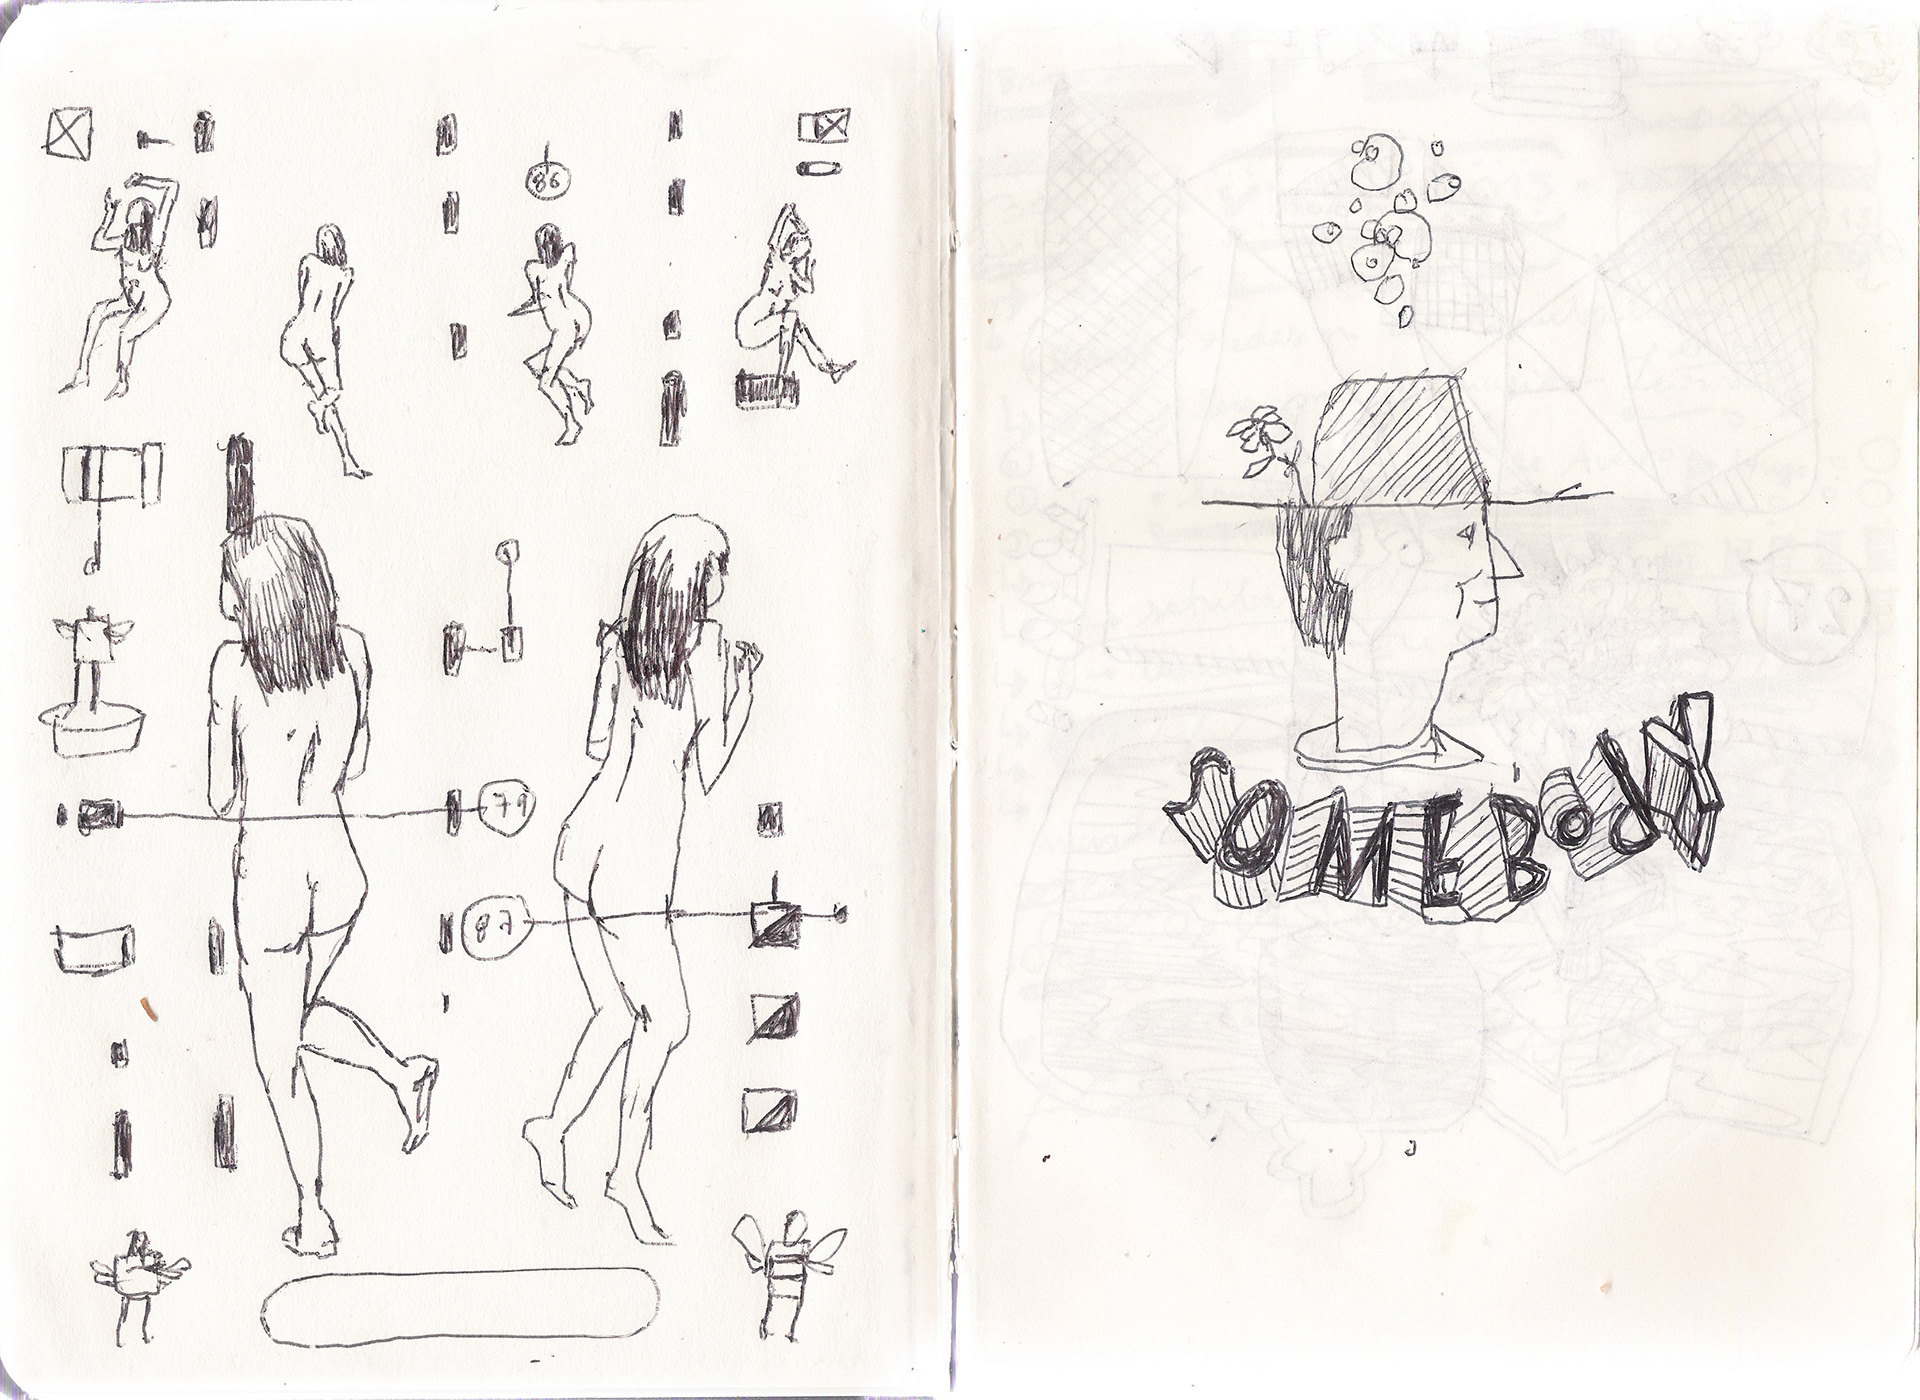 86
79
87
SOMEBODY
27